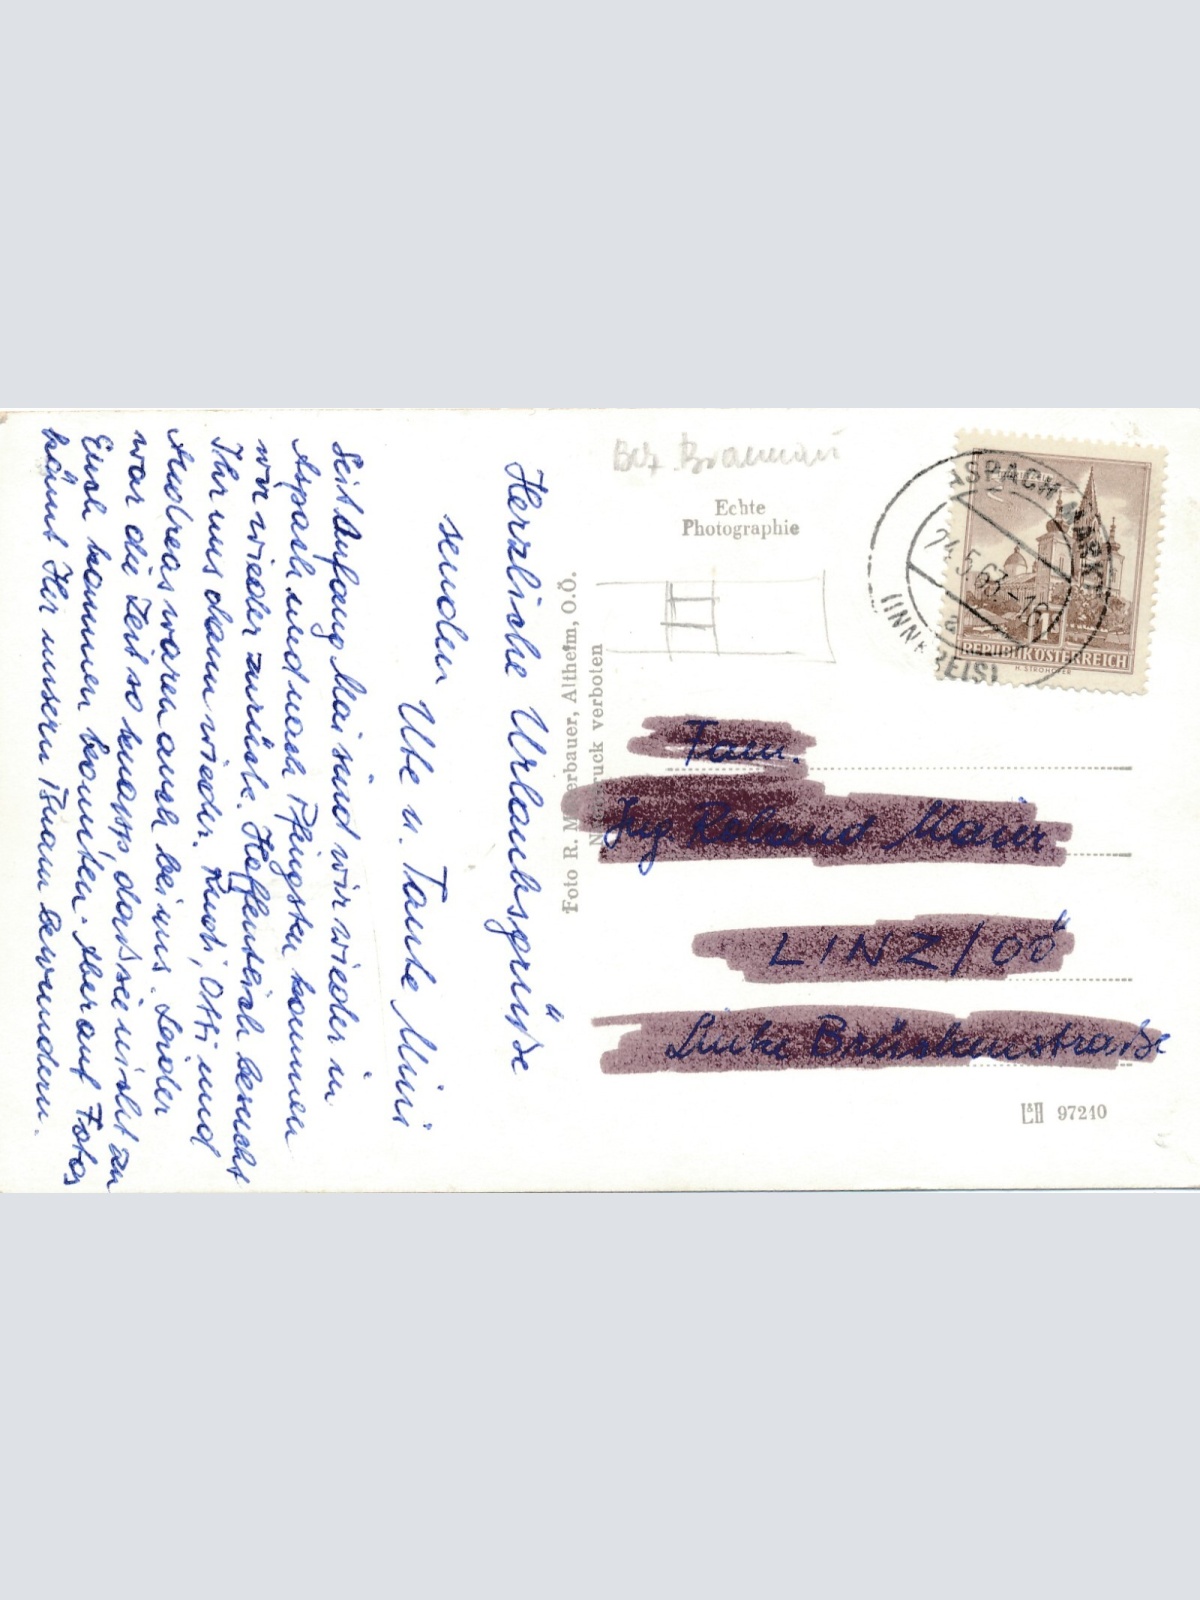 Herzliche Urlaubsgrüße
senden
Ute u. Tante Mini
Seit Anfang Mai sind wir wieder in
Aspach und nach Pfingsten kommen
wir wieder zurück. Hoffentlich besucht
Ihr uns dann wieder. Rudi, Otti und
Andreas waren auch bei uns. Leider
war die Zeit so knapp, daß sie nicht zu
Euch kommen konnten. Aber auf Fotos
könnt Ihr unsern bewundern.
Foto R. M erbauer, Altheim, O.Ö.
N druck verboten
Bez. Braunau
Echte
Photographie
II
ASPACH MARKT
5.63
(INNKREIS)
1
REPUBLIK ÖSTERREICH
Fam.
Ing Roland
LINZ/OÖ
97210